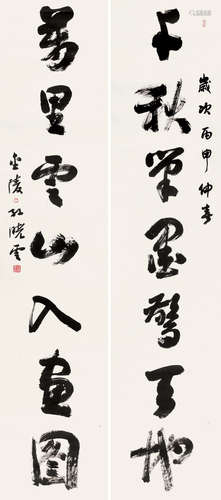 千秋筆墨驚天地
歲次丙申仲春
萬里雲山入畫圖
金陵孫曉雲